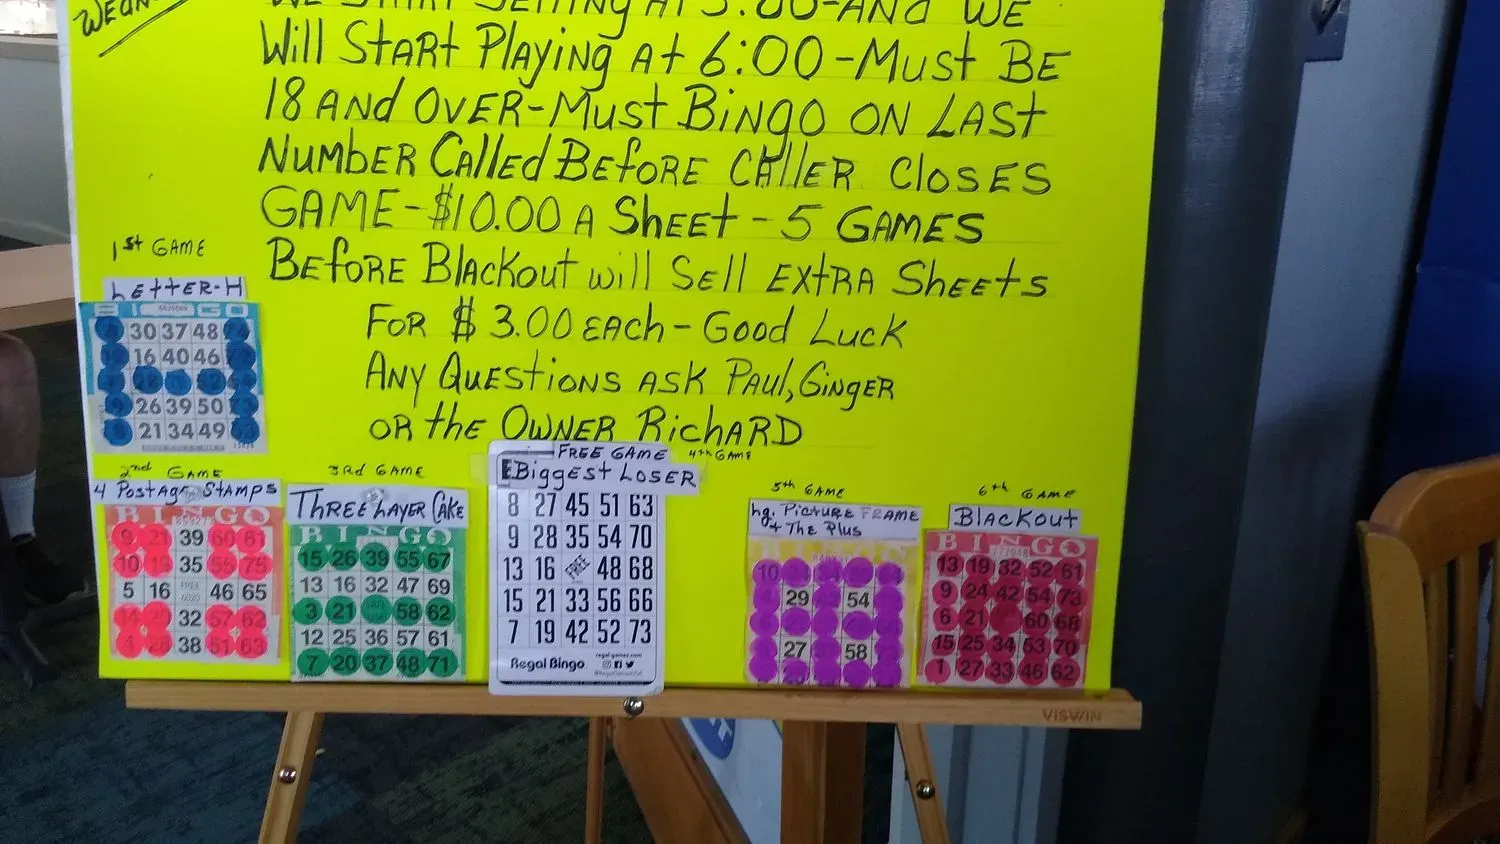 WE START SELLING AT 5:00-AND WE
WILL START PLAYING AT 6:00-MUST BE
18 AND OVER-MUST BINGO ON LAST
NUMBER CALLED BEFORE CALLER CLOSES
GAME-$10.00 A SHEET-5 GAMES
BEFORE BLACKOUT WILL SELL EXTRA SHEETS
FOR $3.00 EACH-GOOD LUCK
ANY QUESTIONS ASK PAUL, GINGER
OR the OWNER RICHARD
1st GAME
LETTER-H
BINGO
30 37 48
16 40 46
26 39 50
21 34 49
2nd GAME
4 POSTAGE STAMPS
BINGO
9 21 39 60 61
10 35 75
5 16 FREE 46 65
32 57 62
4 38 51 63
3Rd GAME
THREE LAYER CAKE
BINGO
15 26 39 55 67
13 16 32 47 69
3 21 58 62
12 25 36 57 61
7 20 37 48 71
FREE GAME 4th GAME
BIGGEST LOSER
8 27 45 51 63
9 28 35 54 70
13 16 FREE 48 68
15 21 33 56 66
7 19 42 52 73
Regal Bingo
regal-games.com
5th GAME
Lg. PICTURE FRAME
+ THE PLUS
BINGO
10
29 54
27 58
6th GAME
BLACKOUT
BINGO
13 19 32 52 61
9 24 42 54 73
6 21 60 68
15 25 34 53 70
1 27 33 46 62
VISWIN